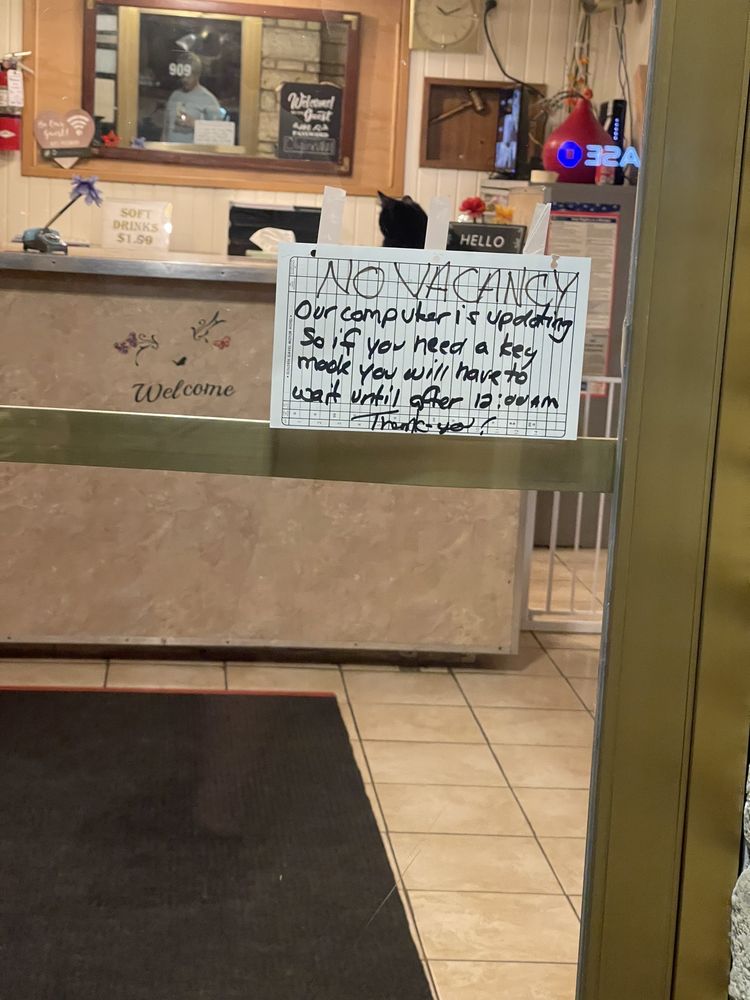 909
Welcome!
Guest
PASSWORD
Be Our
Guest!
SOFT
DRINKS
$1.50
HELLO
NO VACANCY
Our computer is updating
So if you need a key
made you will have to
wait until after 12:00AM
Thank-you!
Welcome